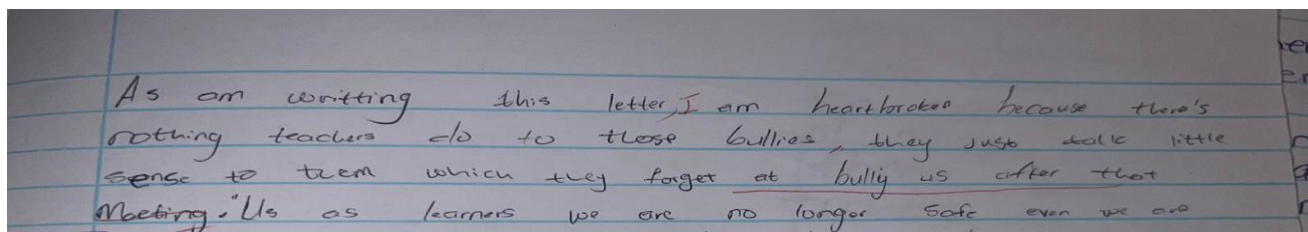 As am writting this letter, I am heartbroken because there's
nothing teachers do to those bullies, they just talk little
sense to them which they forget at bully us after that
Meeting. "Us as learners we are no longer safe even we are